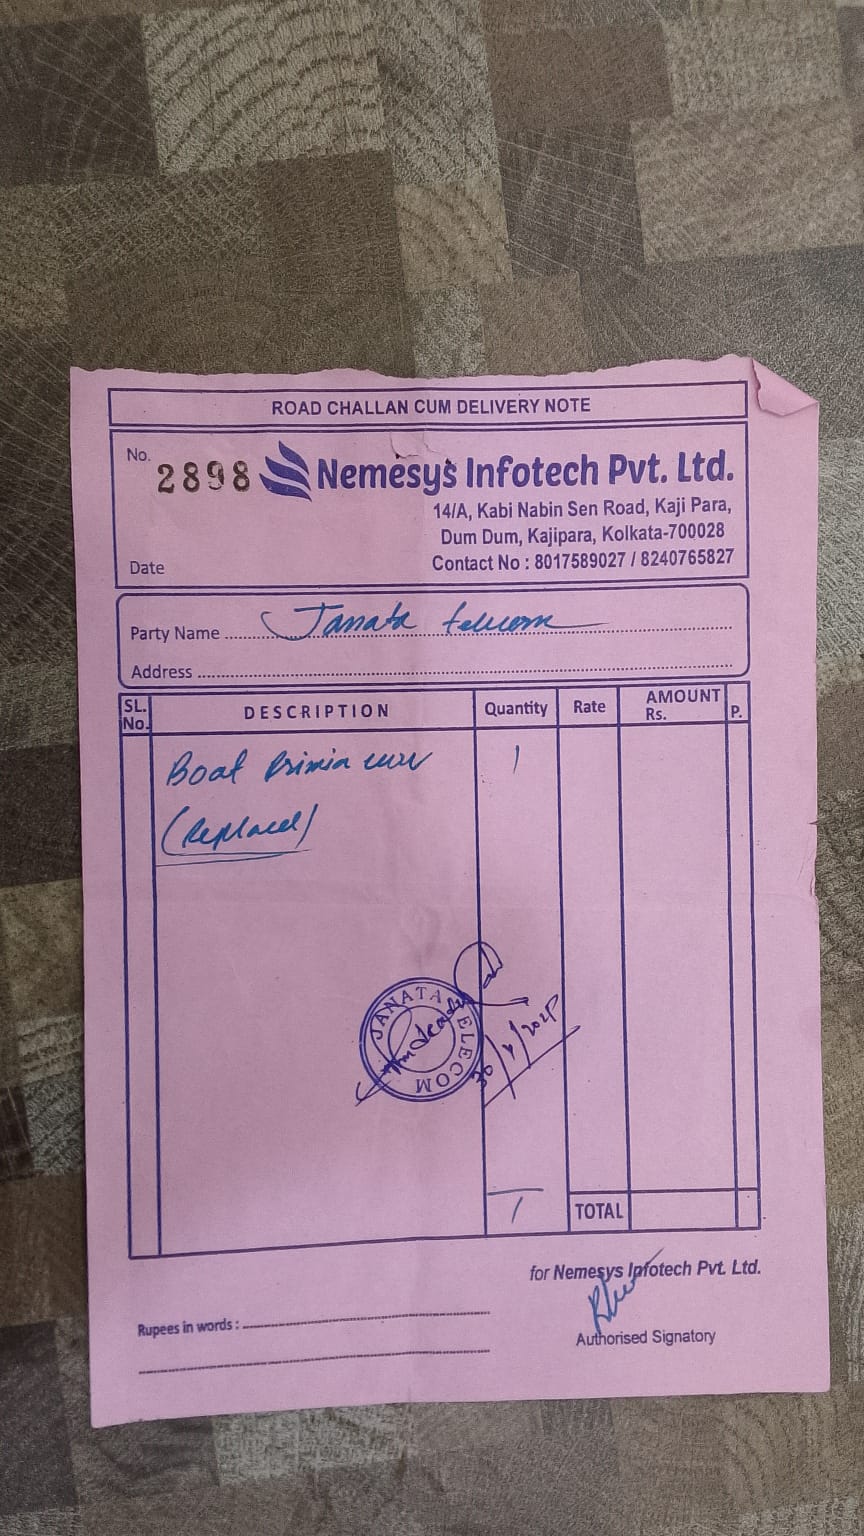 ROAD CHALLAN CUM DELIVERY NOTE
No. 2898
Nemesys Infotech Pvt. Ltd.
14/A, Kabi Nabin Sen Road, Kaji Para,
Dum Dum, Kajipara, Kolkata-700028
Contact No : 8017589027 / 8240765827
Date
Party Name Janata telecom
Address
SL. No. DESCRIPTION Quantity Rate AMOUNT Rs. P.
Boat 1
(Replaced)
JANATA TELECOM
1 TOTAL
for Nemesys Infotech Pvt. Ltd.
Rupees in words :
Authorised Signatory